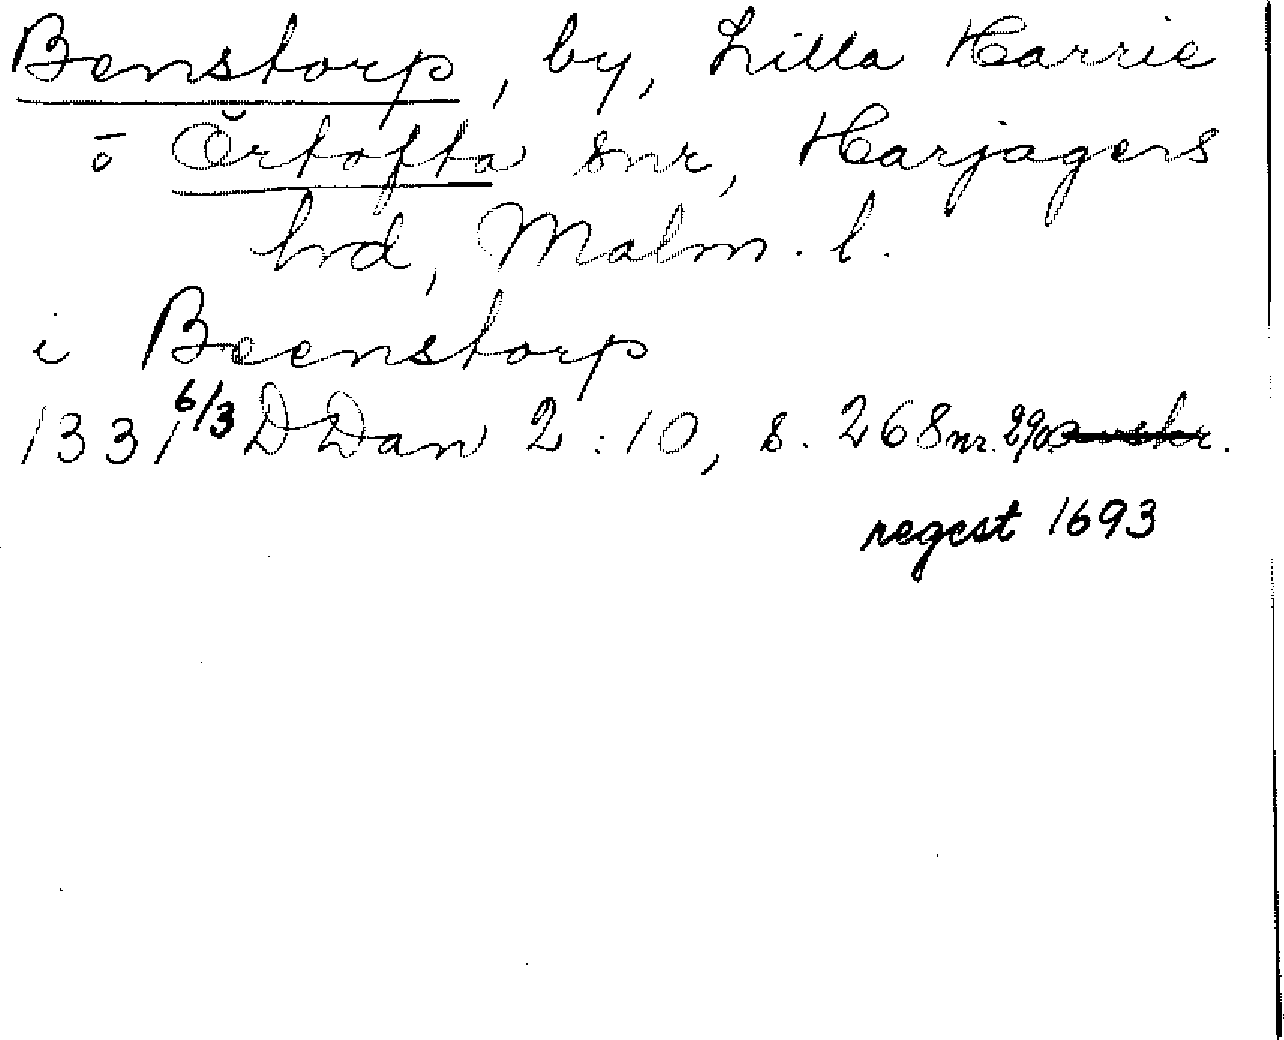 Benstorp, by, Lilla Harrie
o Örtofta snr, Harjagers
hd, Malm. l.
i Beenstorp
1331 6/3 DDan 2:10, s. 268 nr. 290 avskr.
regest 1693